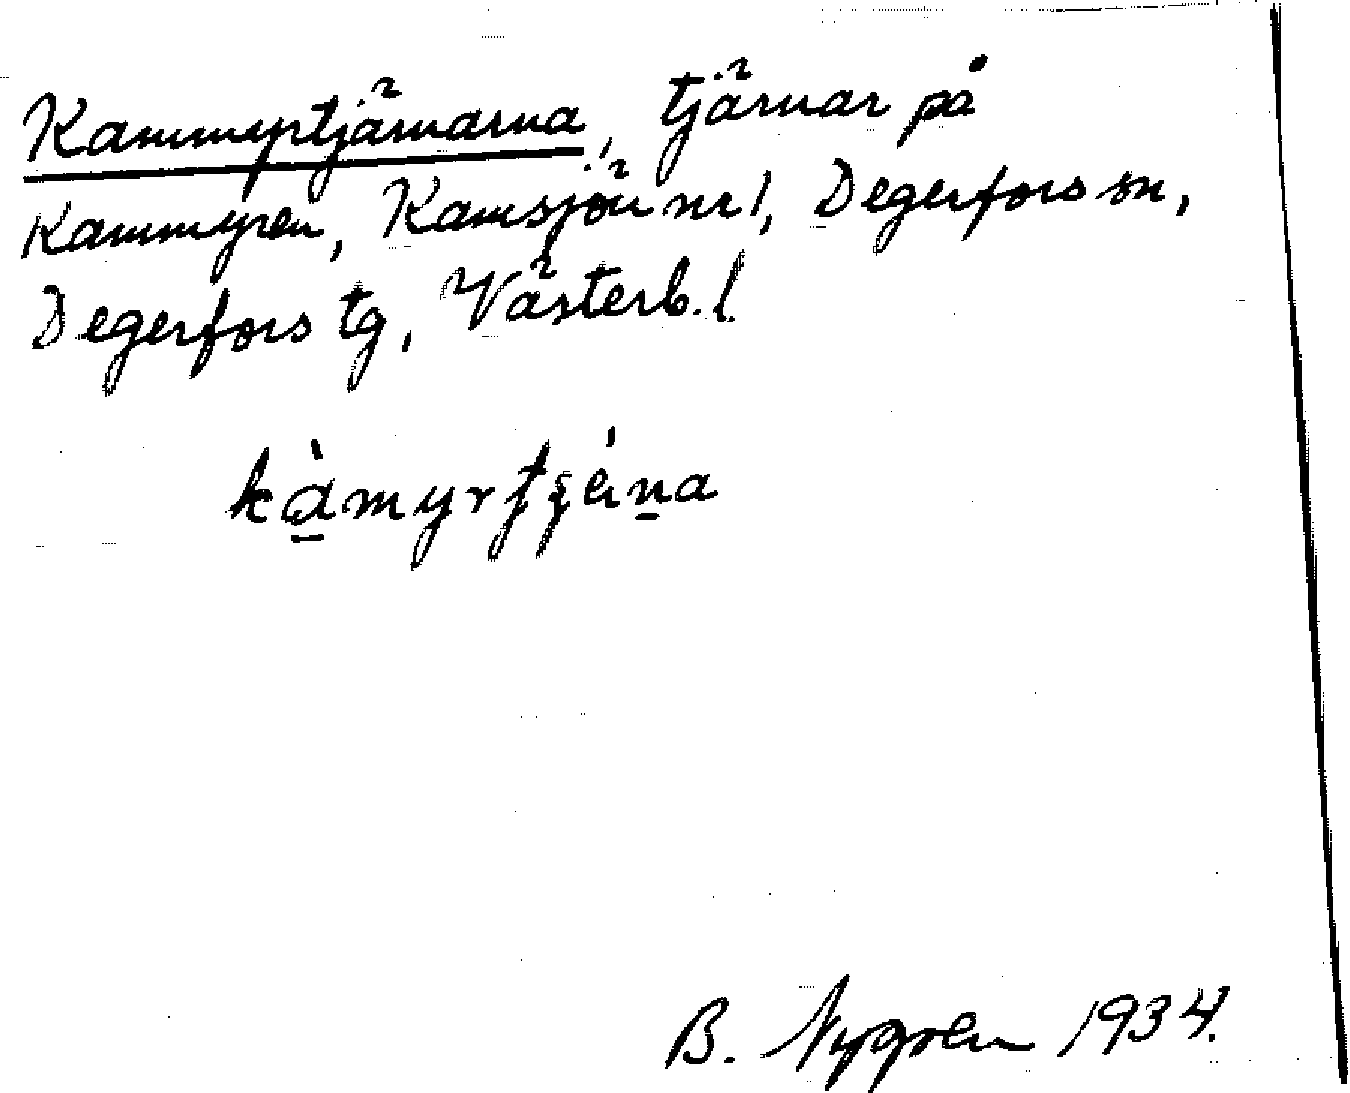 Kammyrtjärnarna, tjärnar på
Kammyren, Kamsjön nr 1, Degerfors sn,
Degerfors tg, Västerb. l.
kàmyrtʂéṇa
B. Nygren 1934.